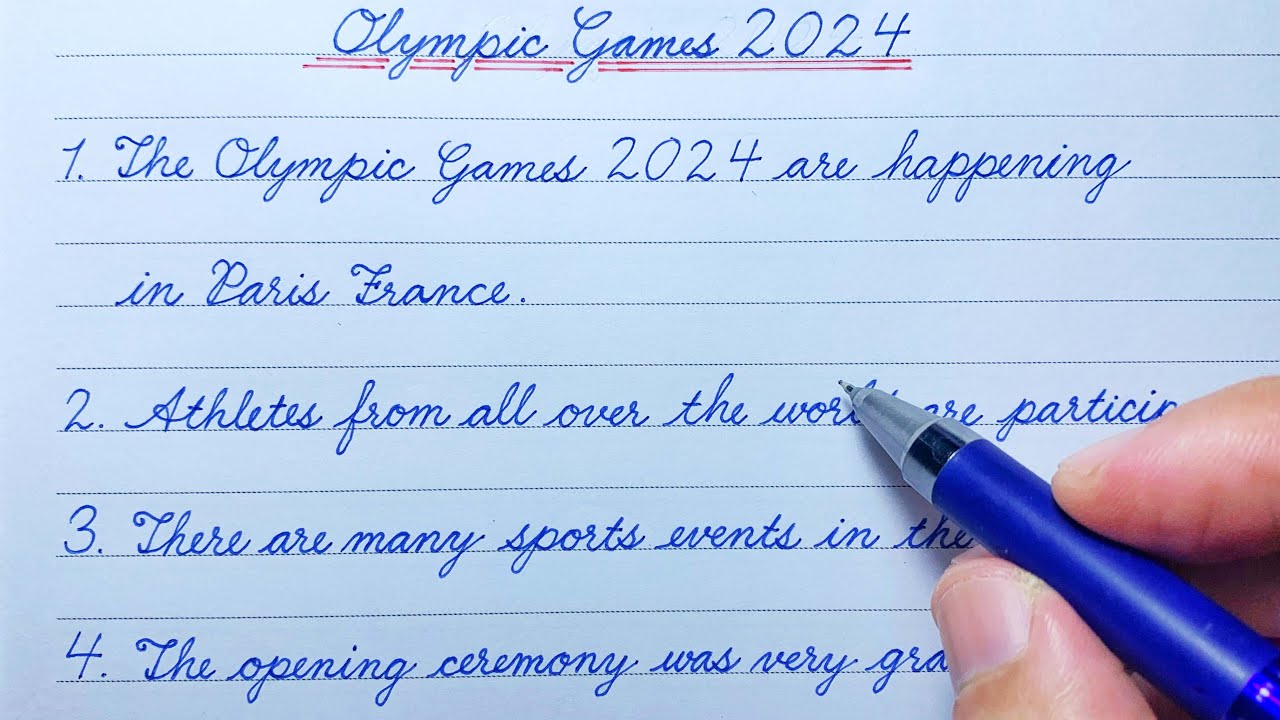 Olympic Games 2024
1. The Olympic Games 2024 are happening
in Paris France.
2. Athletes from all over the world are particip
3. There are many sports events in the
4. The opening ceremony was very gra